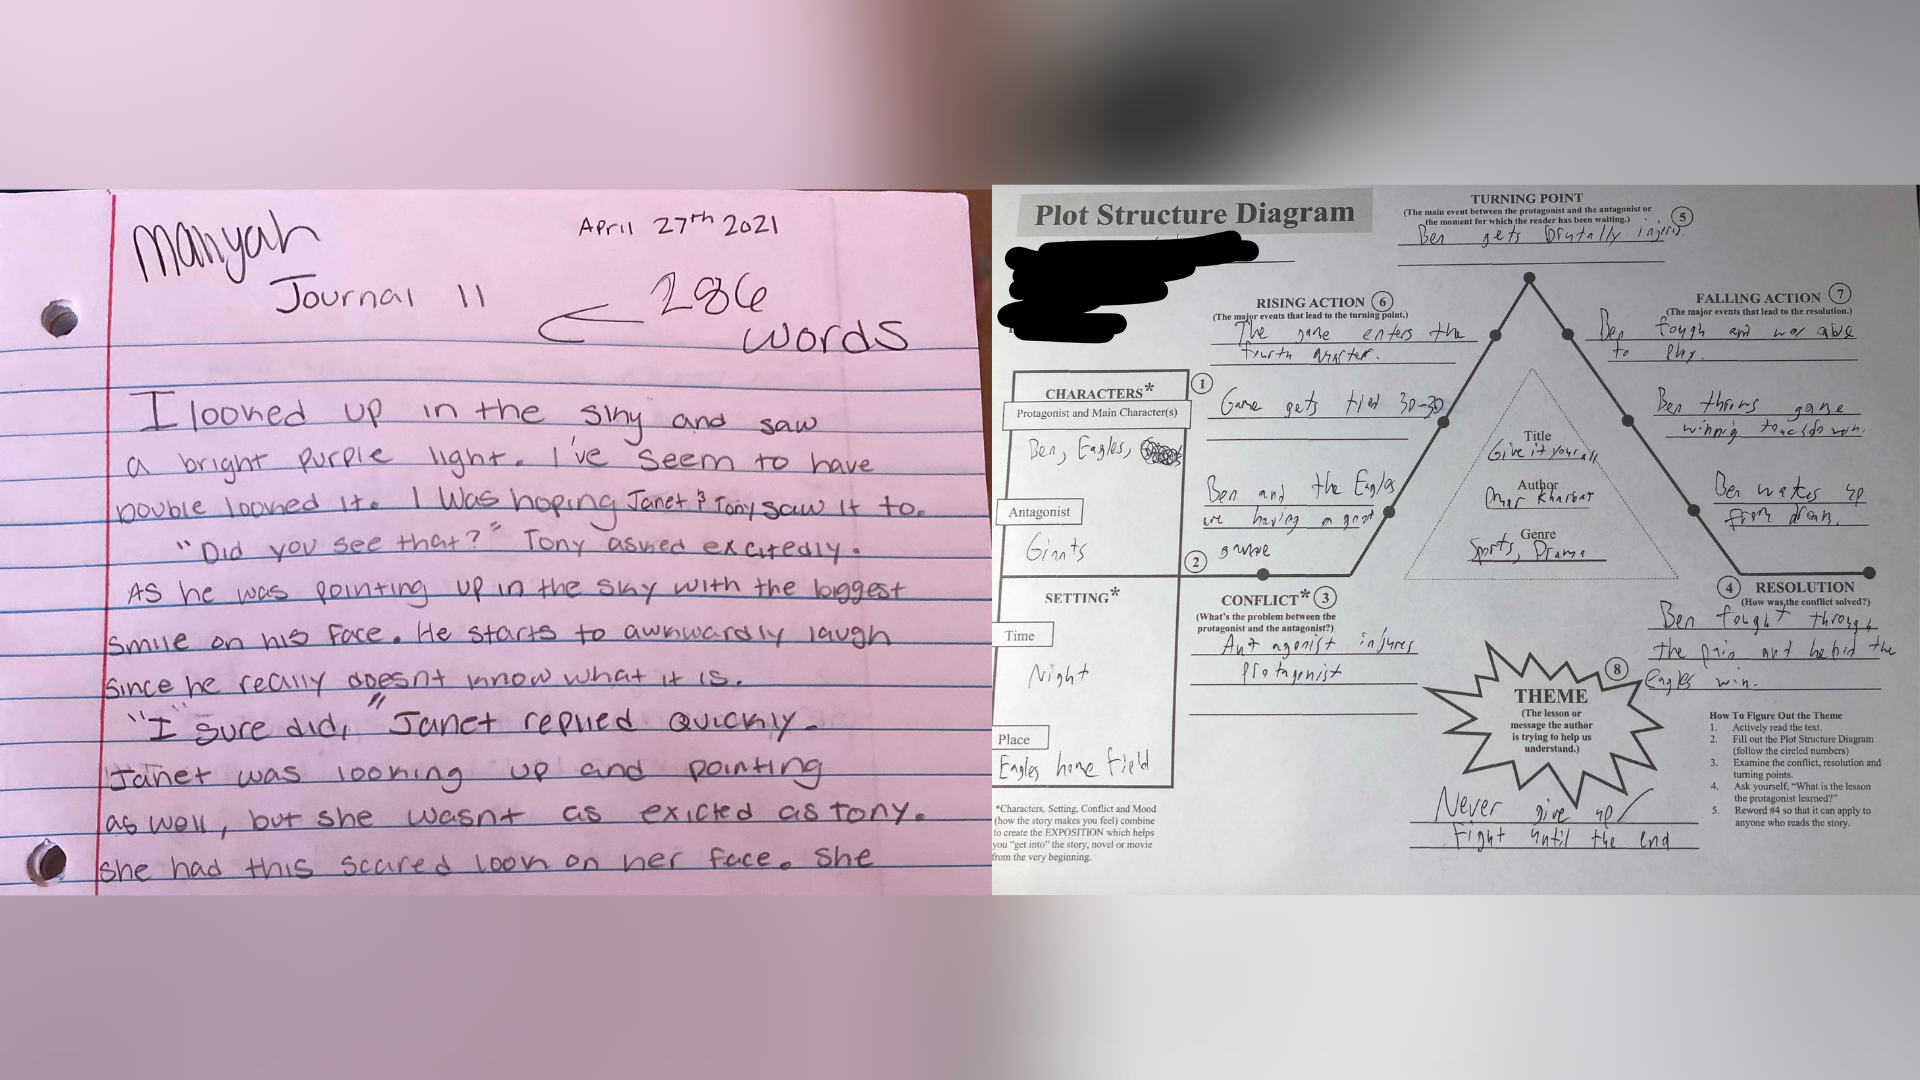 Manyah
April 27th 2021
Journal 11
286
words
I looked up in the sky and saw
a bright purple light. I've seem to have
Double looked it. I was hoping Janet & Tony saw it to.
"Did you see that?" Tony asked excitedly.
As he was pointing up in the sky with the biggest
smile on his face. He starts to awkwardly laugh
since he really doesnt know what it is.
"I" sure did," Janet replied Quickly.
Janet was looking up and pointing
as well, but she wasnt as exicted as Tony.
she had this scared look on her face. She
Plot Structure Diagram
TURNING POINT
(The main event between the protagonist and the antagonist or
the moment for which the reader has been waiting.)
5
Ben gets brutally
RISING ACTION 6
(The major events that lead to the turning point.)
The game enters the
fourth quarter.
Game gets tied 30-30
Ben and the Eagles
are having a good
game
FALLING ACTION 7
(The major events that lead to the resolution.)
Ben fough and was able
to play.
Ben throws game
winnig touchdown.
Ben wakes up
from dream.
1
CHARACTERS*
Protagonist and Main Character(s)
Ben, Eagles,
Antagonist
Giants
2
SETTING*
Time
Night
Place
Eagles home field
*Characters, Setting, Conflict and Mood
(how the story makes you feel) combine
to create the EXPOSITION which helps
you "get into" the story, novel or movie
from the very beginning.
Title
Give it your all
Author
Omar Kharbat
Genre
Sports, Drama
CONFLICT* 3
(What's the problem between the
protagonist and the antagonist?)
Antagonist injures
Protagonist
4 RESOLUTION
(How was the conflict solved?)
Ben fought through
the pain and helped the
Eagles win.
8
THEME
(The lesson or
message the author
is trying to help us
understand.)
Never give up/
Fight until the end
How To Figure Out the Theme
1. Actively read the text.
2. Fill out the Plot Structure Diagram
(follow the circled numbers)
3. Examine the conflict, resolution and
turning points.
4. Ask yourself, "What is the lesson
the protagonist learned?"
5. Reword #4 so that it can apply to
anyone who reads the story.